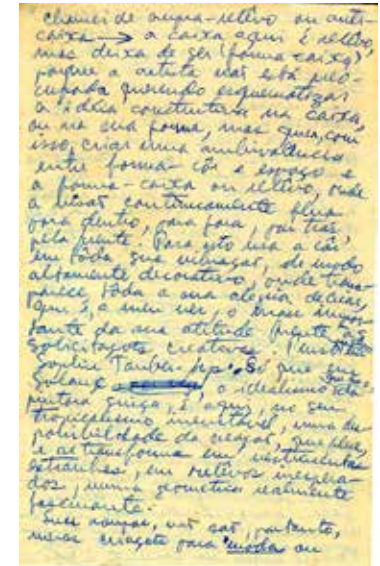 chamei de supra-relêvo ou anti-
caixa → a caixa aqui é relêvo,
mas deixa de ser (forma-caixa)
porque a artista não está preo-
cupada querendo esquematizar
a idéia construtiva na caixa,
ou na sua forma, mas quer, com
isso, criar uma ambivalência
entre forma-côr e espaço e
a forma-caixa ou relêvo, onde
a visão continuamente flua
para dentro, para fora, por trás,
pela frente. Para isto usa a côr
em tôda sua vibração, de modo
altamente decorativo, onde trans-
parece tôda a sua alegria de criar,
que é, a meu ver, o mais impor-
tante da sua atitude frente às
solicitações creativas.
Sophie Tauber-Arp. Só que em
Solange, o idealismo da
pintora suíça, é, aqui, no seu
tropicalismo inevitável, uma dis-
ponibilidade da criação, que flui,
e se transforma em
estranhos, em relevos inespera-
dos, numa geometria realmente
fascinante.
Suas roupas, não são, portanto,
meras criações para moda ou